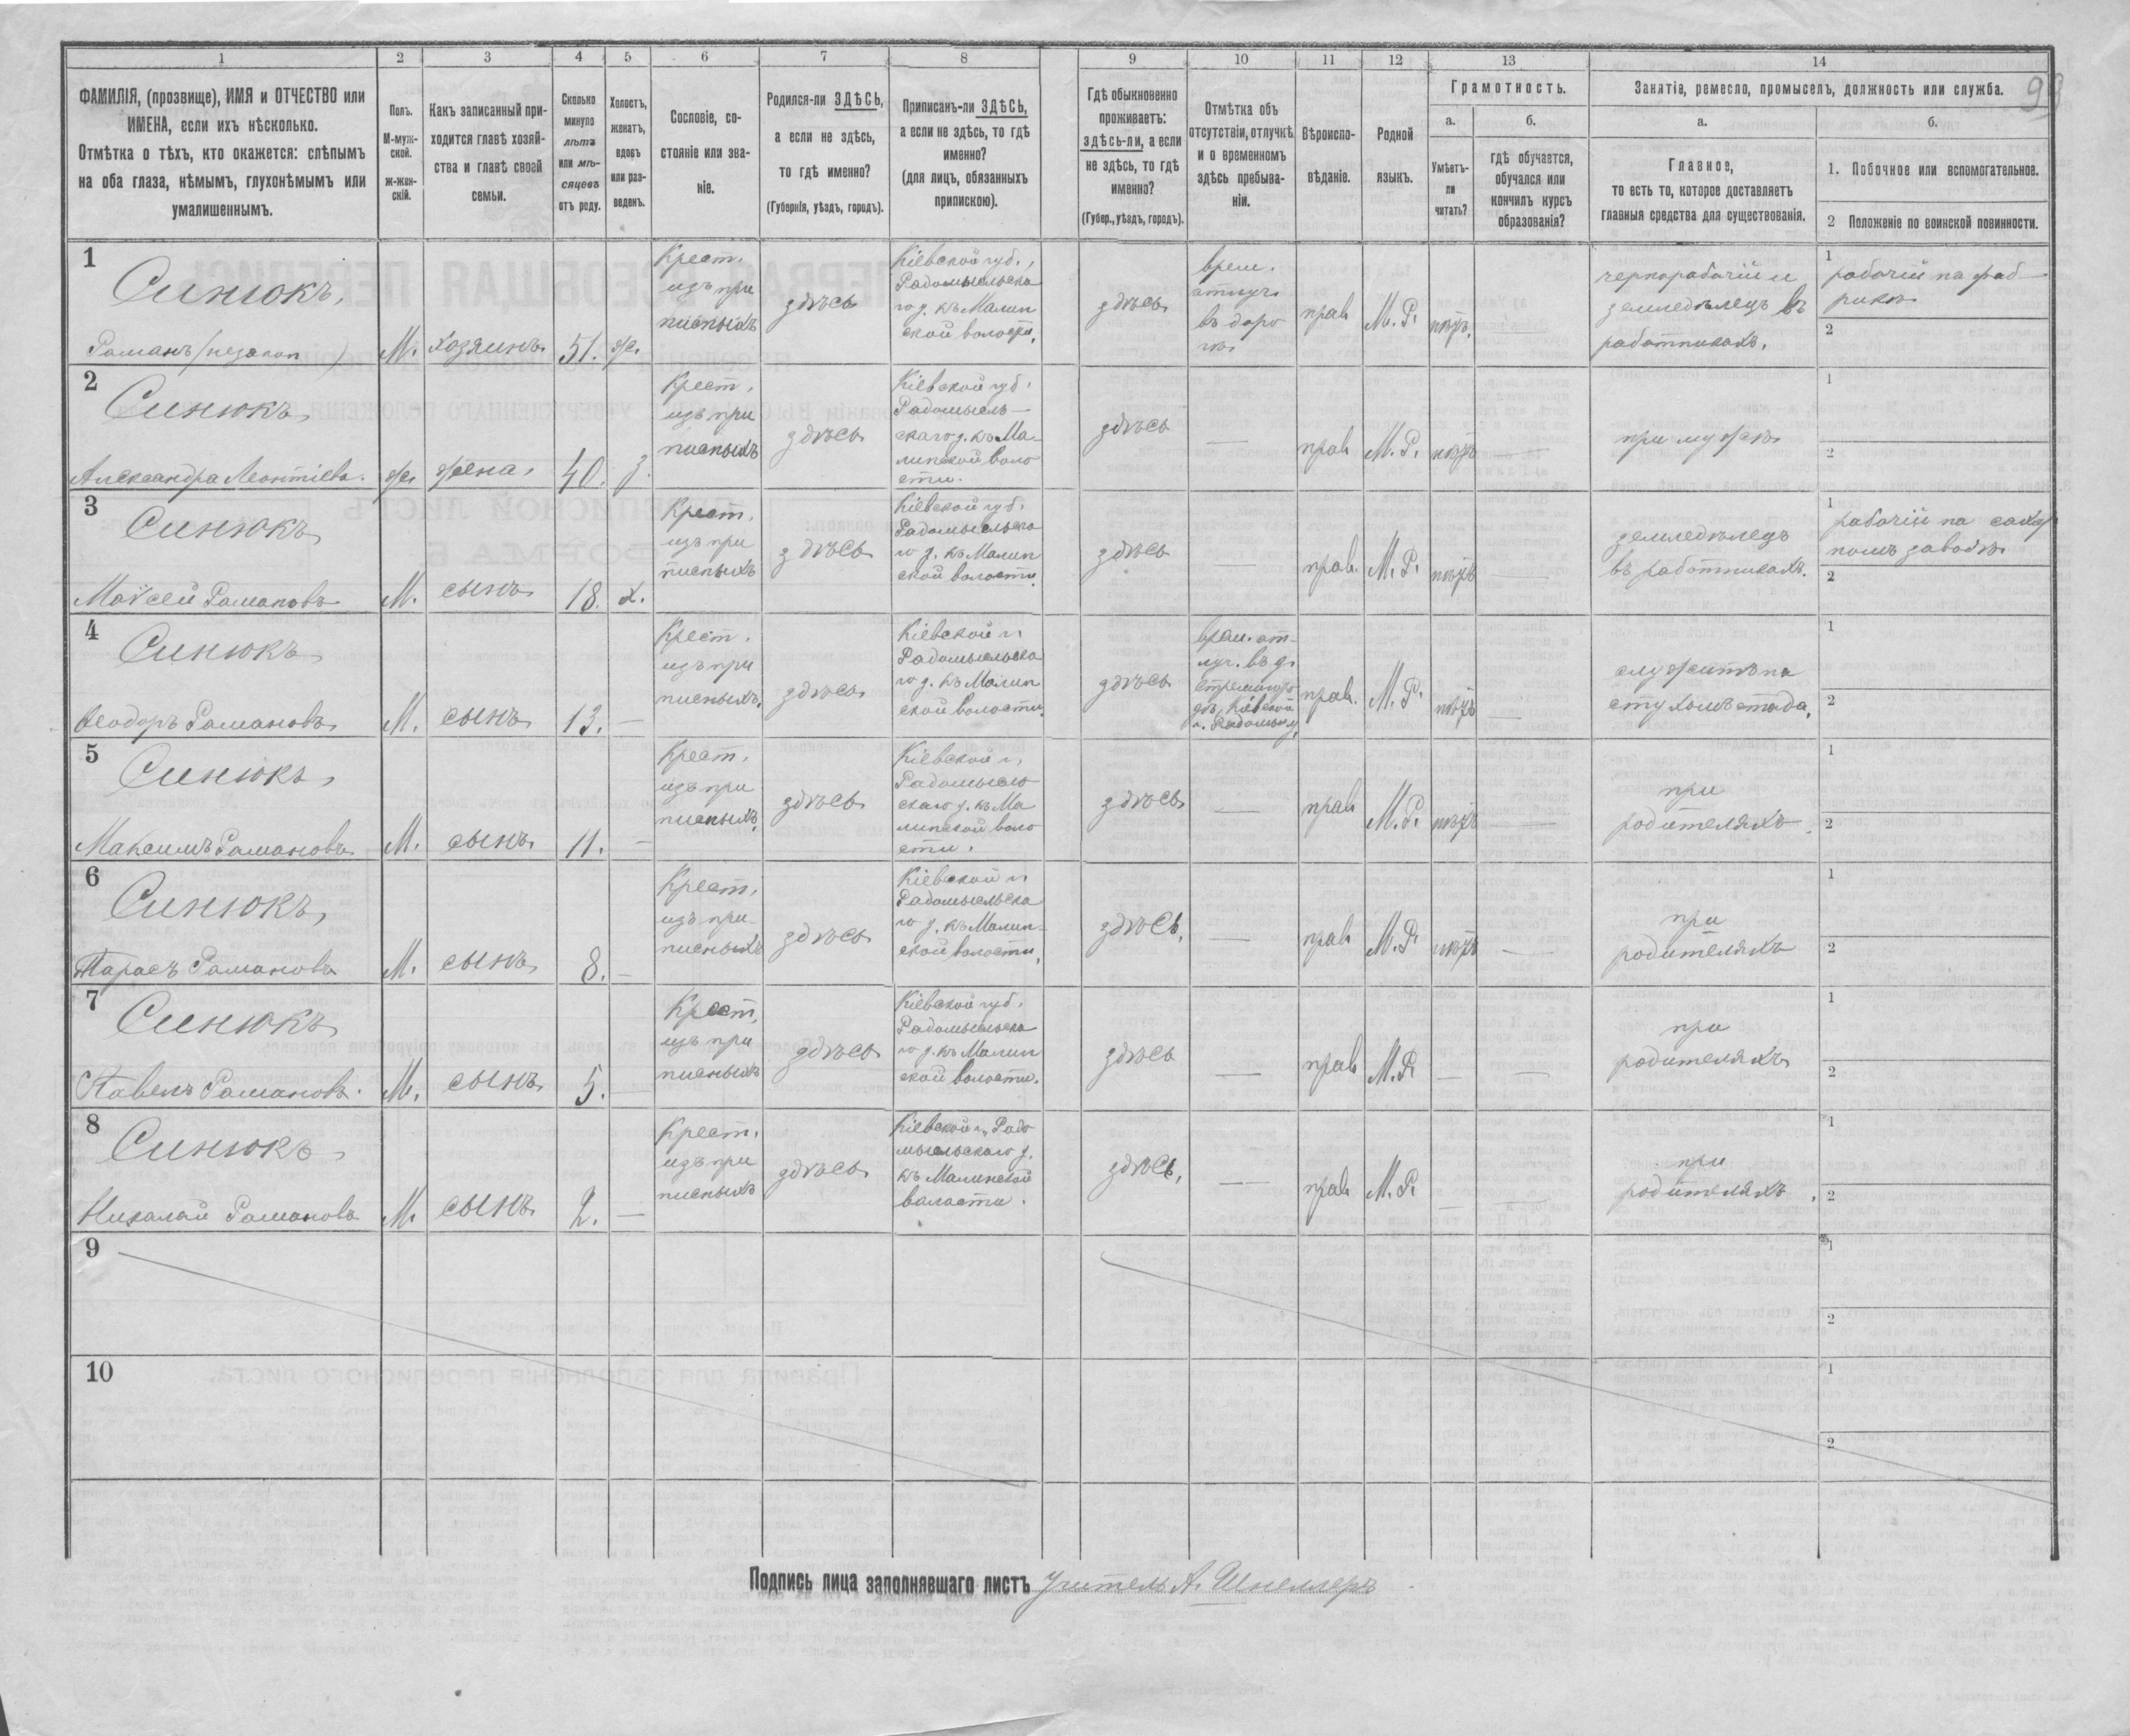 1 2 3 4 5 6 7 8 9 10 11 12 13 14
93
ФАМИЛІЯ, (прозвище), ИМЯ и ОТЧЕСТВО или
ИМЕНА, если ихъ нѣсколько.
Отмѣтка о тѣхъ, кто окажется: слѣпымъ
на оба глаза, нѣмымъ, глухонѣмымъ или
умалишеннымъ.
Полъ.
М-муж-
ской.
ж-жен-
скій.
Какъ записанный при-
ходится главѣ хозяй-
ства и главѣ своей
семьи.
Сколько
минуло
лѣтъ
или мѣ-
сяцевъ
отъ роду.
Холостъ,
женатъ,
вдовъ
или раз-
веденъ.
Сословіе, со-
стояніе или зва-
ніе.
Родился-ли ЗДѢСЬ,
а если не здѣсь,
то гдѣ именно?
(Губернія, уѣздъ, городъ).
Приписанъ-ли ЗДѢСЬ,
а если не здѣсь, то гдѣ
именно?
(для лицъ, обязанныхъ
припискою).
Гдѣ обыкновенно
проживаетъ:
здѣсь-ли, а если
не здѣсь, то гдѣ
именно?
(Губер., уѣздъ, городъ).
Отмѣтка объ
отсутствіи, отлучкѣ
и о временномъ
здѣсь пребыва-
ніи.
Вѣроиспо-
вѣданіе.
Родной
языкъ.
Грамотность.
а.
Умѣетъ-
ли
читать?
б.
гдѣ обучается,
обучался или
кончилъ курсъ
образованія?
Занятіе, ремесло, промыселъ, должность или служба.
а.
Главное,
то есть то, которое доставляетъ
главныя средства для существованія.
б.
1. Побочное или вспомогательное.
2 Положеніе по воинской повинности.
1
Синюкъ,
Романъ (незакон )
М.
хозяинъ
51.
ж.
Крест.
изъ при
писныхъ
здѣсь
Кіевской губ.,
Радомысльска
го у. къ Малин
ской волости.
здѣсь
врем.
отлуч.
въ доро
гѣ
прав
М. Р.
нѣтъ.
—
чернорабочій и
земледѣлецъ въ
работникахъ.
1
рабочій на фаб—
рикѣ
2
2
Синюкъ,
Александра Леонтіева.
ж.
жена,
40.
з.
Крест.
изъ при
писныхъ
здѣсь
Кіевской губ.
Радомысль—
скаго у. къ Ма—
линской воло
сти.
здѣсь
—
прав
М. Р.
нѣтъ
—
при мужѣ
1
2
3
Синюкъ
Моѵсей Романовъ
М.
сынъ
18.
х.
Крест.
изъ при
писныхъ
здѣсь
Кіевской губ.
Радомысльска
го у. къ Малин
ской волости.
здѣсь
—
прав.
М. Р.
нѣтъ
—
земледѣлецъ
въ работникахъ.
1
рабочій на сахар
номъ заводѣ
2
4
Синюкъ
Ѳеодоръ Романовъ
М.
сынъ
13.
—
Крест.
изъ при
писныхъ.
здѣсь
Кіевской г.
Радомысльска
го у. къ Малин
ской волости.
здѣсь
врем. от—
луч. въ д.
прав.
М. Р.
нѣтъ
—
служитъ па
стухомъ стада.
1
2
5
Синюкъ,
Максимъ Романовъ
М.
сынъ
11.
—
Крест.
изъ при
писныхъ.
здѣсь
Кіевской г.
Радомысль
скаго у. къ Ма
линской воло
сти.
здѣсь
—
прав
М. Р.
нѣтъ
—
при
родителяхъ
1
2
6
Синюкъ,
Тарасъ Романовъ
М.
сынъ
8.
—
Крест.
изъ при
писныхъ
здѣсь
Кіевской г.
Радомысльска
го у. къ Малин—
ской волости.
здѣсь,
—
прав
М. Р.
нѣтъ
—
при
родителяхъ
1
2
7
Синюкъ
Павелъ Романовъ.
М.
сынъ
5.
—
Крест.
изъ при
писныхъ
здѣсь
Кіевской губ.
Радомысльска
го у. къ Малин
ской волости.
здѣсь
—
прав
М. Р.
—
—
при
родителяхъ
1
2
8
Синюкъ
Николай Романовъ
М.
сынъ
2.
—
Крест.
изъ при
писныхъ
здѣсь
Кіевской г., Радо
мысльскаго у.
къ Малинской
волости.
здѣсь,
—
прав
М. Р.
—
—
при
родителяхъ.
1
2
9
1
2
10
1
2
Подпись лица заполнявшаго листъ учитель А. Шнеллеръ